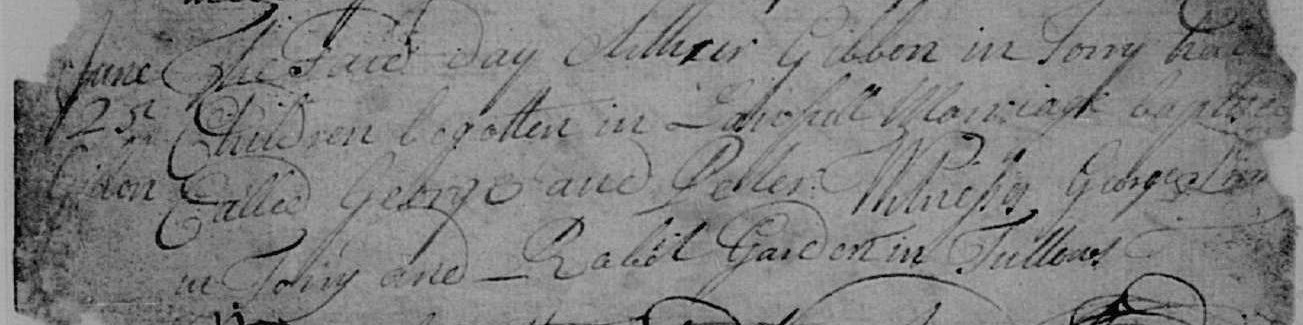 June The Said day Gibbon in Torry had
25th Children begotten in Lawfull Marriage baptized
Gibbon Called George and Petter. Witnesses George
in Torry and Robert Gardon in